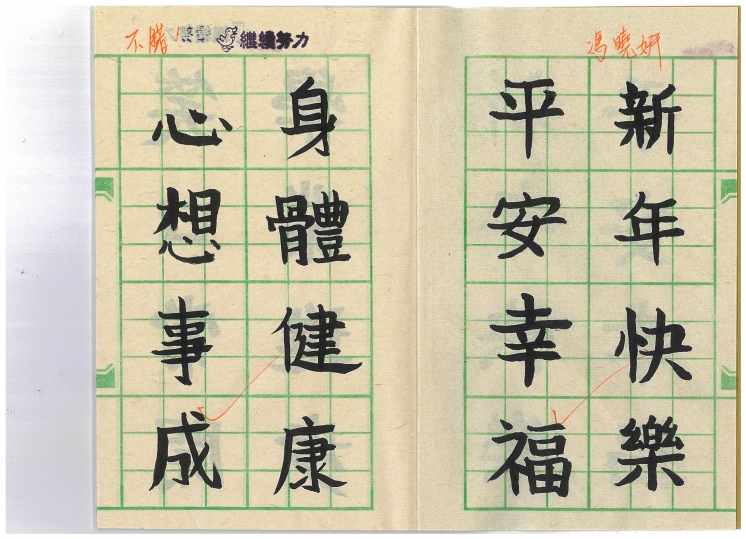 馮曉妍
新年快樂
平安幸福
身體健康
心想事成
不錯！
繼續努力